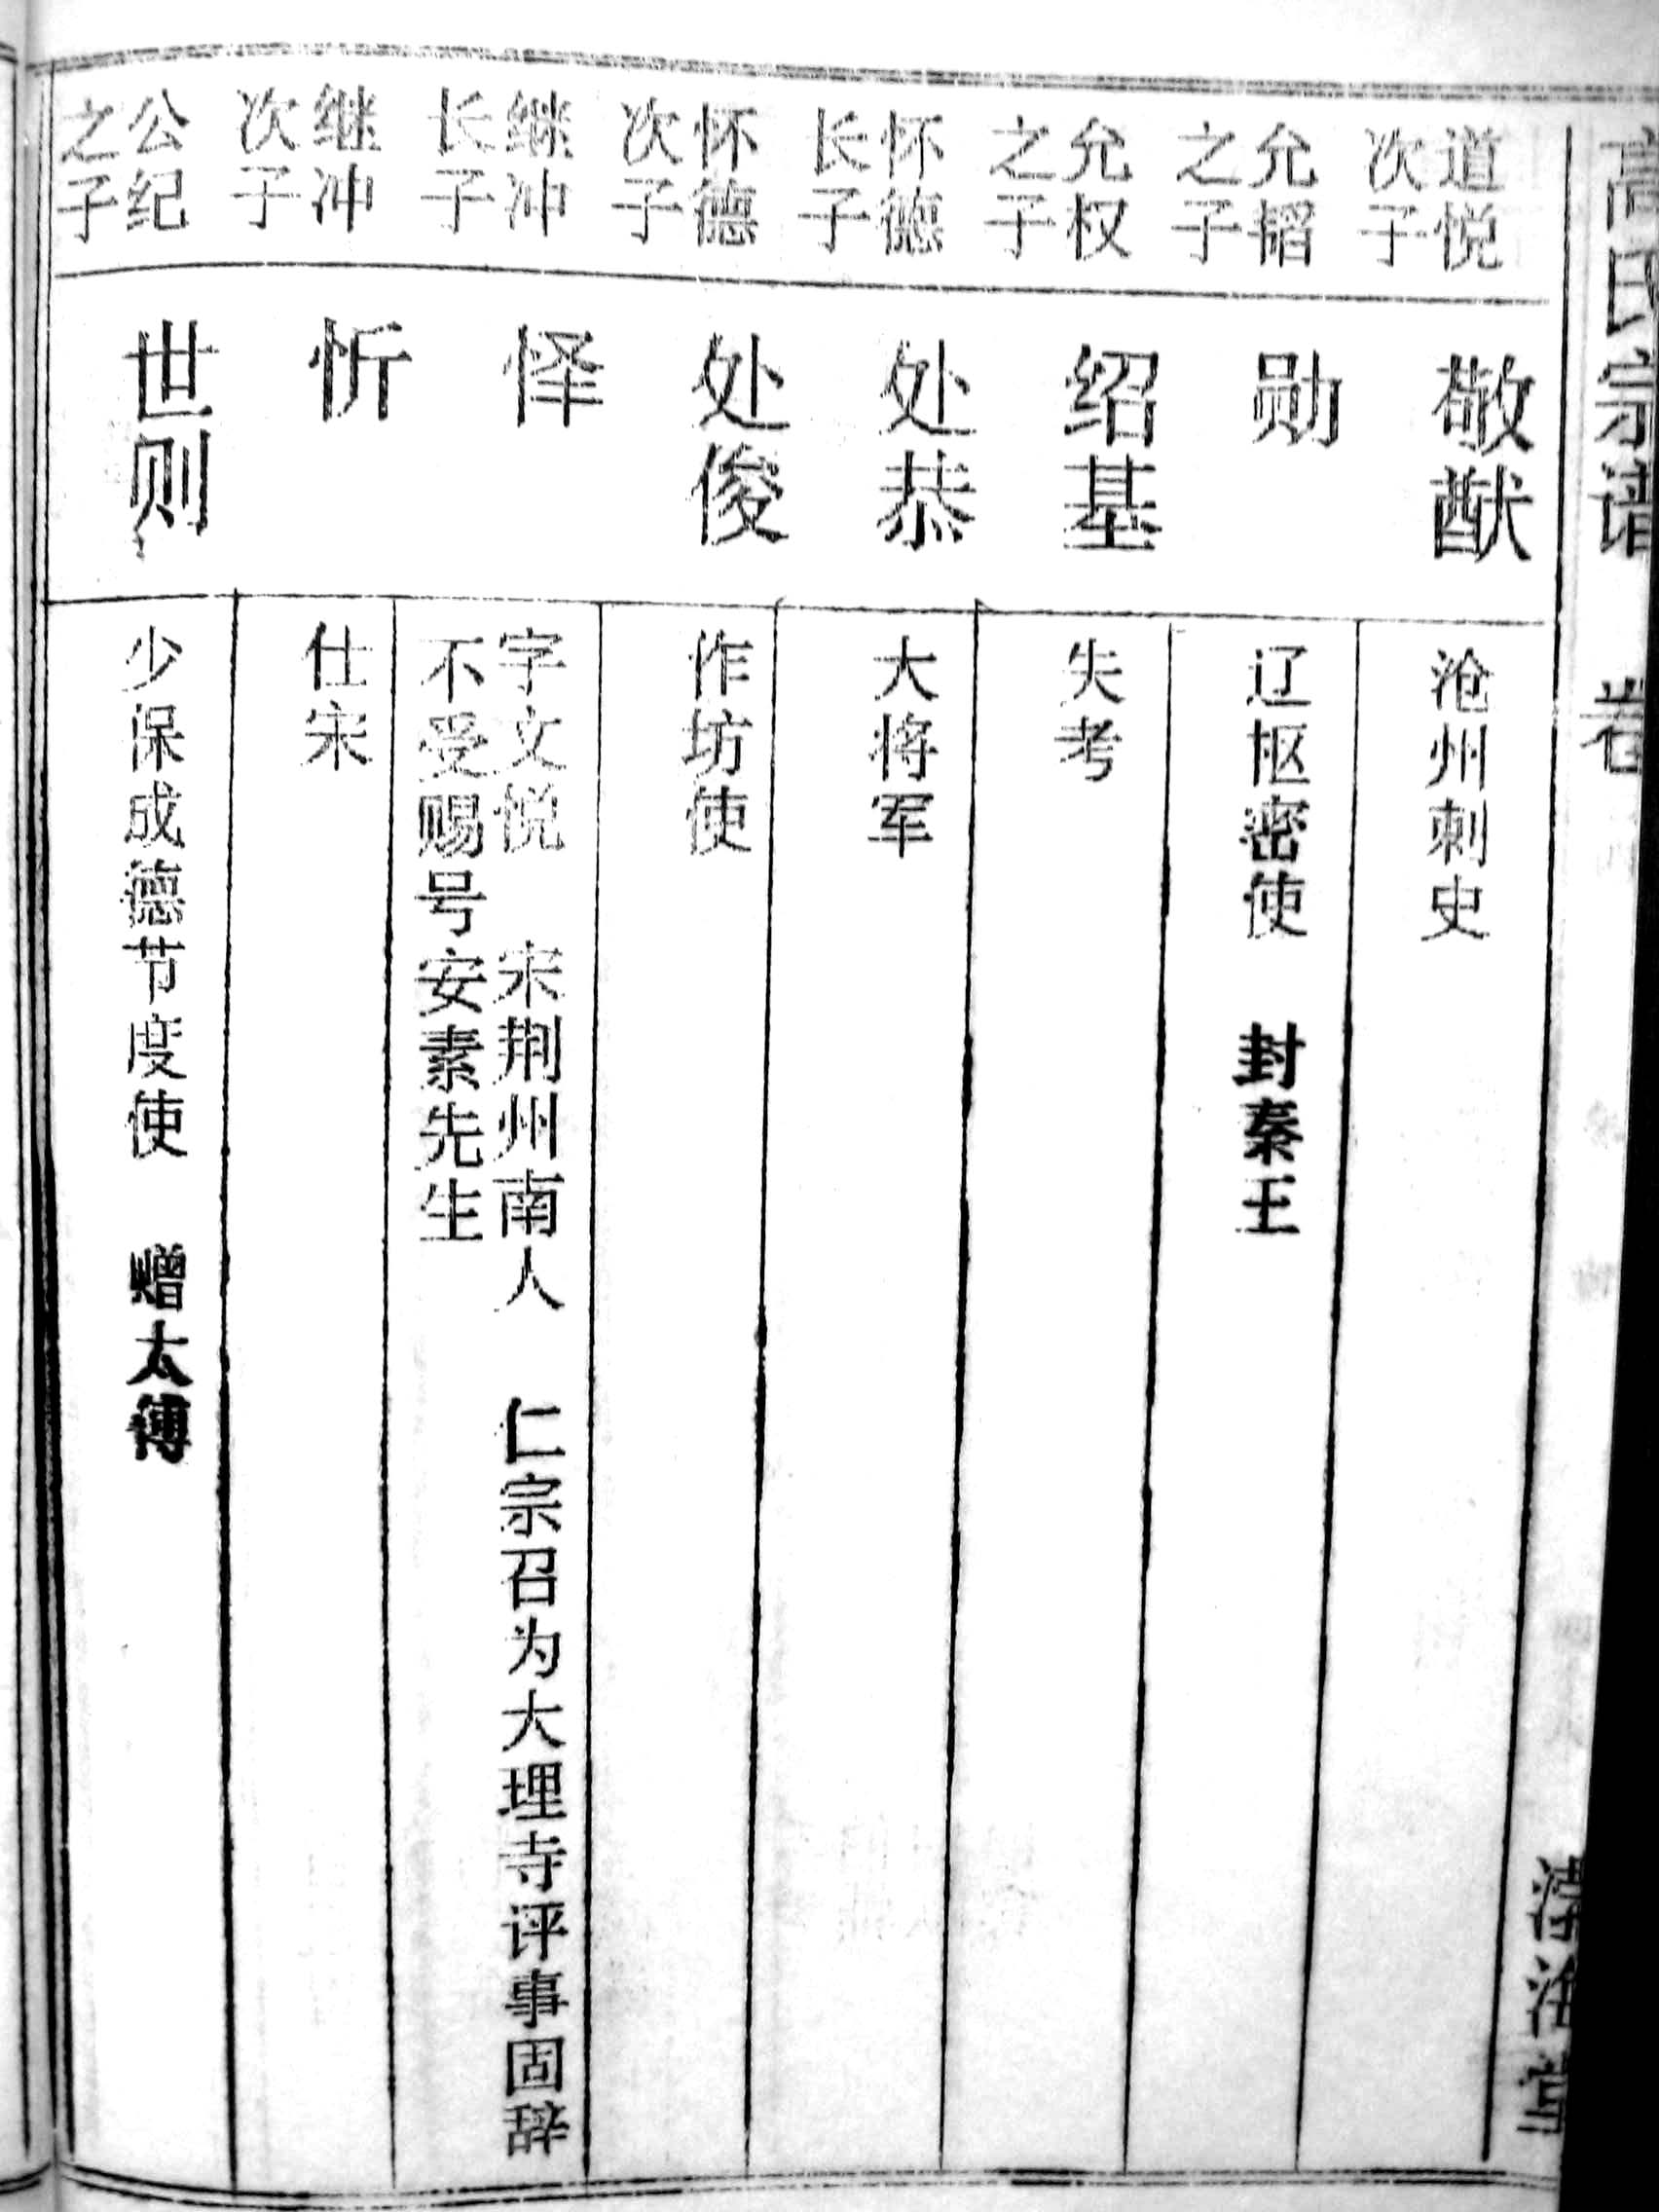 高氏宗谱 卷
道悦
次子
敬猷
沧州刺史
允韬
之子
勋
辽枢密使 封秦王
允权
之子
绍基
失考
怀德
长子
处恭
大将军
怀德
次子
处俊
作坊使
继冲
长子
怿
字文悦 宋荆州南人 仁宗召为大理寺评事固辞
不受赐号安素先生
继冲
次子
忻
仕宋
公纪
之子
世则
少保成德节度使 赠太傅
堂